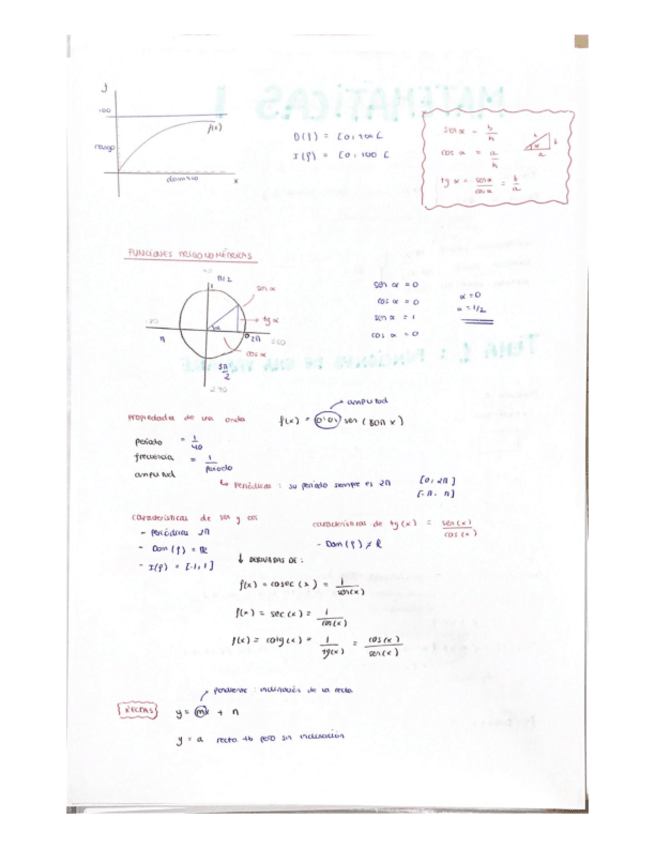 y
100
rango
f(x)
dominio
x
I(f) = [0, 100 [
sen α = b/h
cos α = a/h
tg α = sen α / cos α = b/a
h
b
α
a
FUNCIONES TRIGONOMÉTRICAS
sen α
tg α
cos α
α
π
2π
270
sen α = 0
cos α = 0
sen α = 1
cos α = 0
α = 0
Propiedades de una onda
amplitud
f(x) = 0'01 sen (80π x)
periodo = 1/40
frecuencia = 1/periodo
amplitud
↳ Periódicas : su periodo siempre es 2π
[0, 2π]
[-π, π]
características de sen y cos
- periódicas 2π
- Dom (f) = R
- I(f) = [-1, 1]
características de tg(x) = sen(x)/cos(x)
- Dom (f) ≠ R
↓ DERIVADAS DE :
f(x) = cosec (x) = 1/sen(x)
f(x) = sec (x) = 1/cos(x)
f(x) = cotg (x) = 1/tg(x) = cos(x)/sen(x)
pendiente : inclinación de la recta
RECTAS
y = mx + n
y = a recta tb pero sin inclinación
MATEMÁTICAS 1
TEMA 1 : FUNCIONES DE UNA VARIABLE